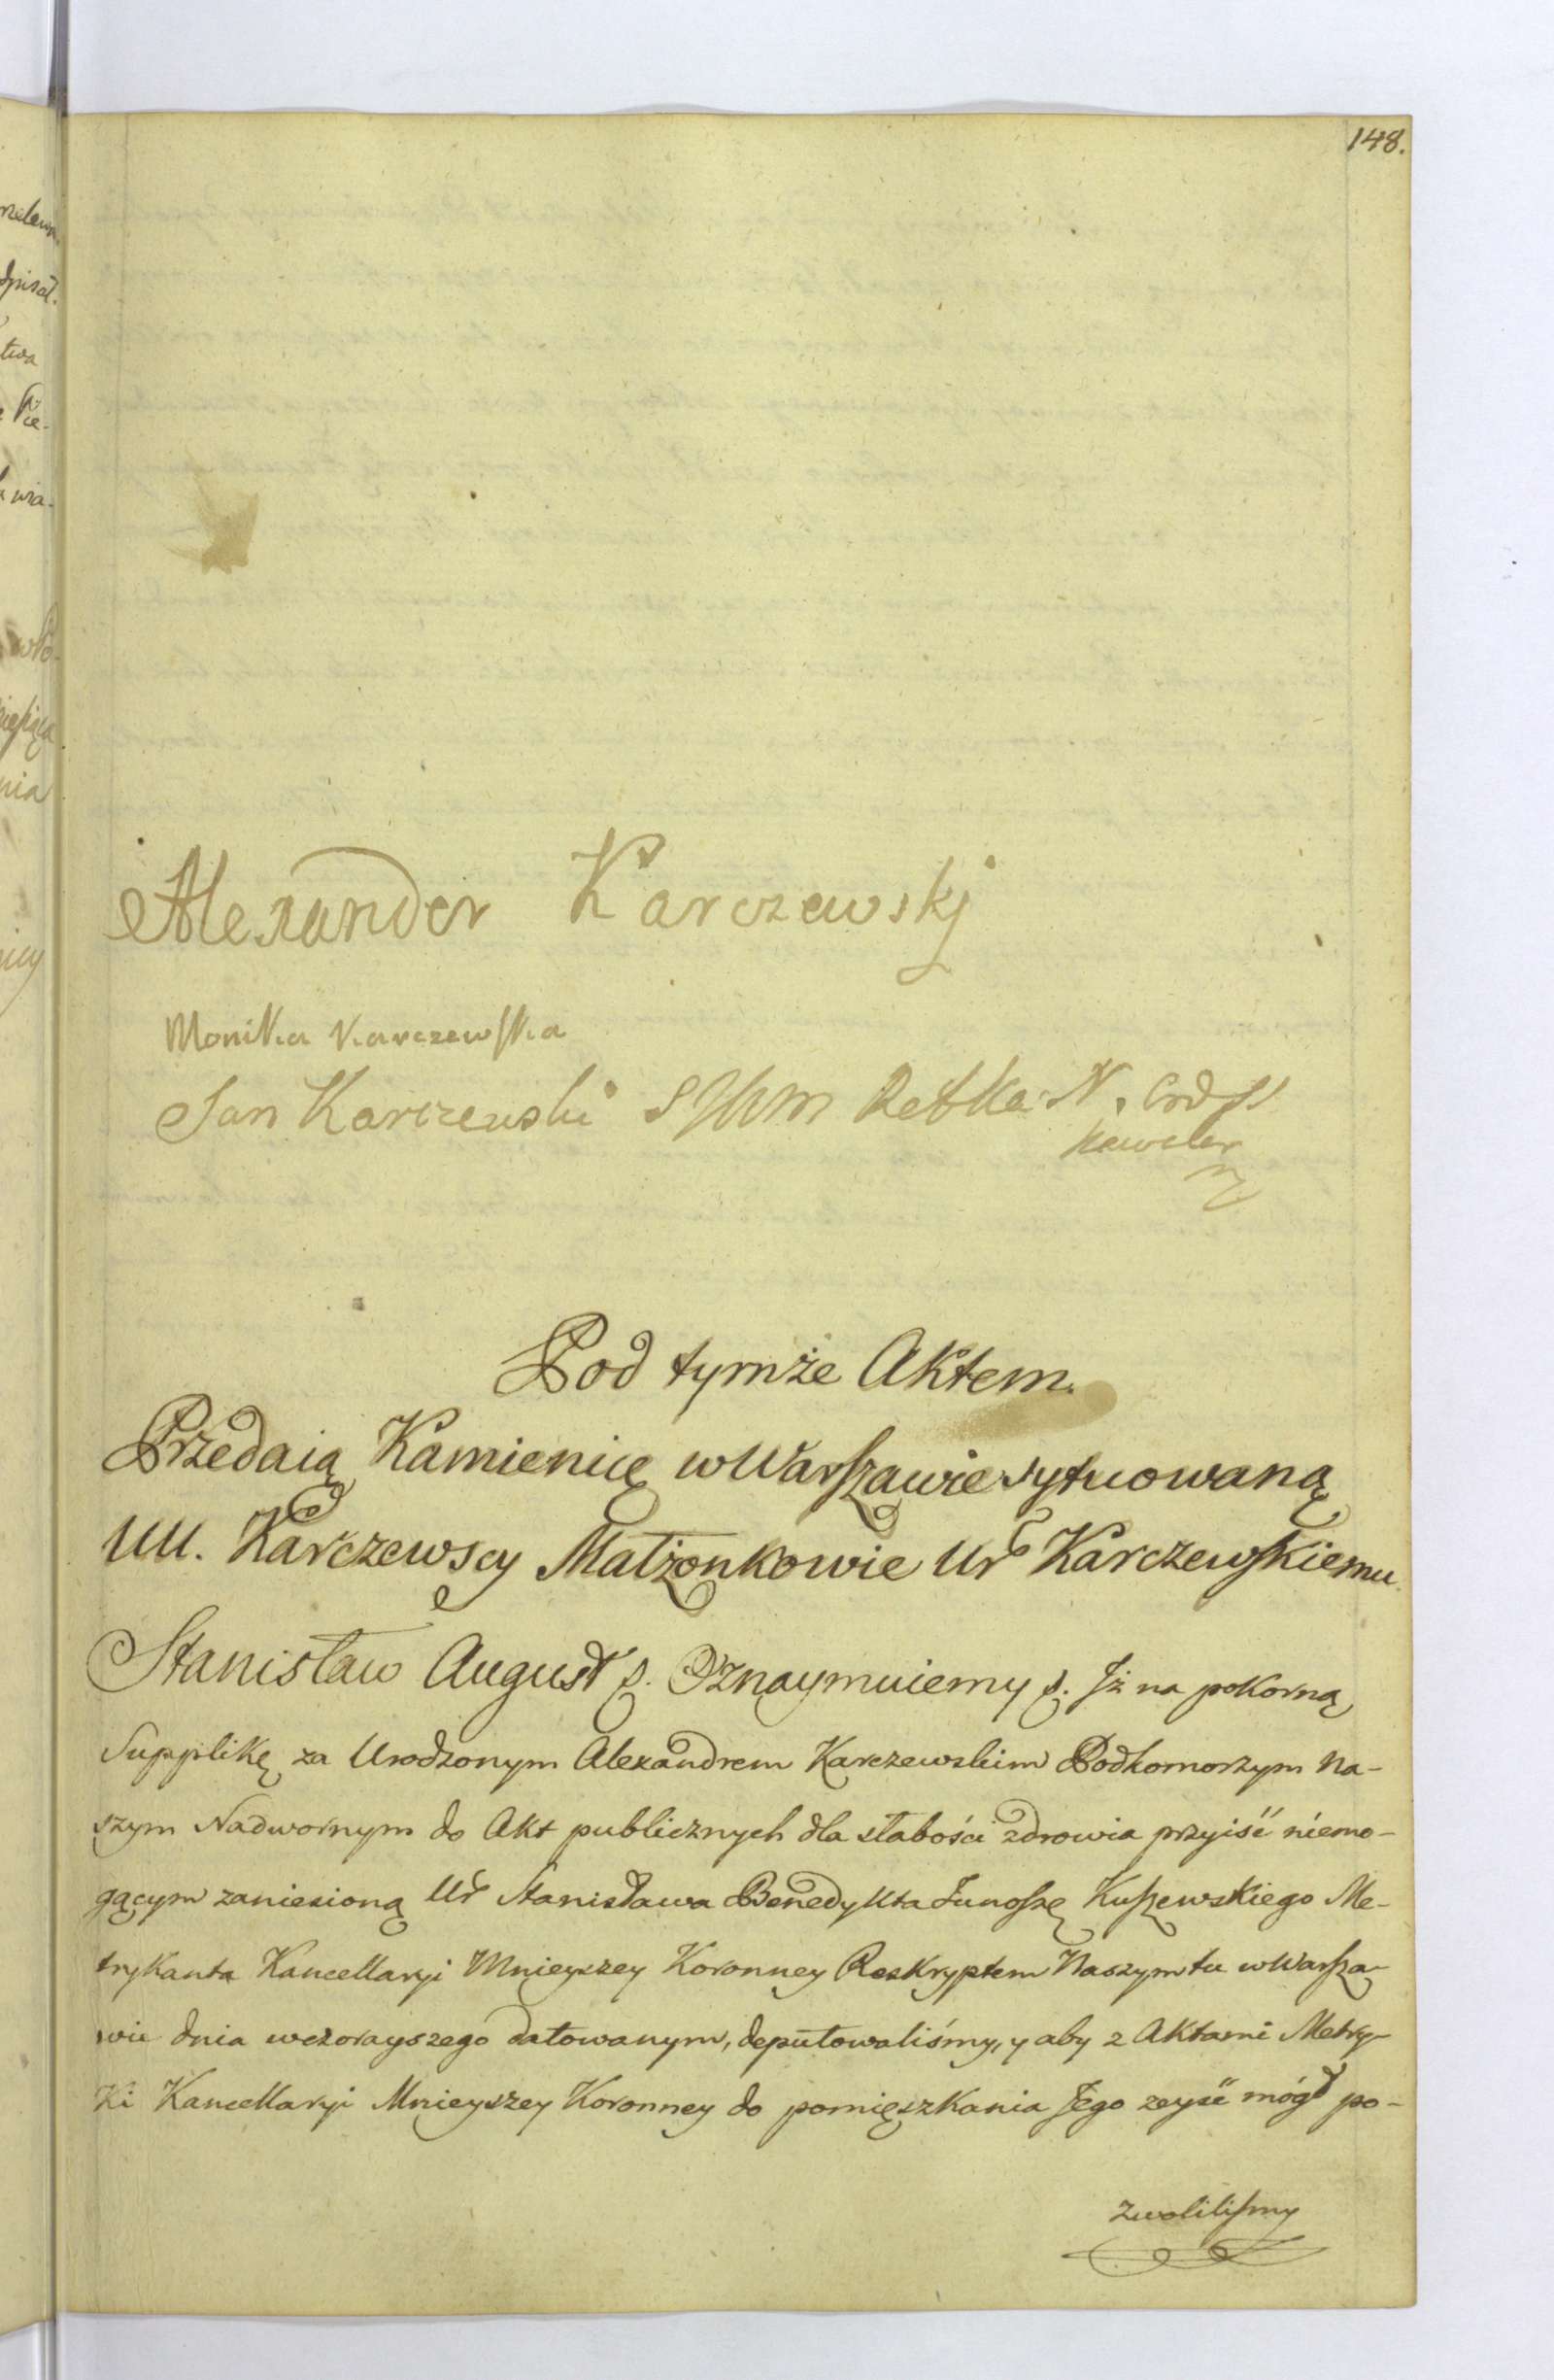 148.
Alexander Karczewskj
Monika Karczewska
Jan Karczewski
Kawaler
Pod tymże Aktem.
Przedaią Kamienicę w Warszawie sytuowaną
UU. Karczewscy Małżonkowie Ur Karczewskiemu.
Stanisław August p. Oznaymuiemy p. Jż na pokorną
Supplikę za Urodzonym Alexandrem Karczewskim Podkomorzym Na-
szym Nadwornym do Akt publicznych dla słabości zdrowia przyiść niemo-
gącym zaniesioną Ur Stanisława Benedykta Junoszę Kuszewskiego Me-
trykanta Kancellaryi Mnieyszey Koronney Reskryptem Naszym tu w Warsza-
wie dnia wczorayszego datowanym, deputowaliśmy, y aby z Aktami Metry-
ki Kancellaryi Mnieyszey Koronney do pomięszkania Jego zeyść mógł po-
zwoliliśmy